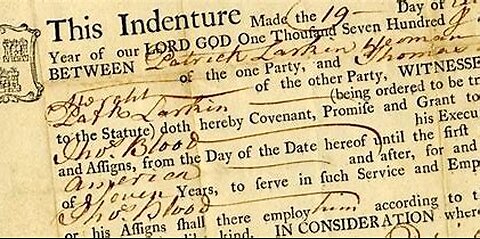 This Indenture Made the 19 Day of
Year of our LORD GOD One Thousand Seven Hundred
BETWEEN Patrick Larkin Yeoman
of the one Party, and Thomas
of the other Party, WITNESSE
Patk Larkin (being ordered to be tr
to the Statute) doth hereby Covenant, Promise and Grant to
Thos Blood his Execu
and Assigns, from the Day of the Date hereof until the first
american and after, for and
of Seven Years, to serve in such Service and Emp
Thos Blood
or his Assigns shall there employ him according to t
like kind. IN CONSIDERATION where